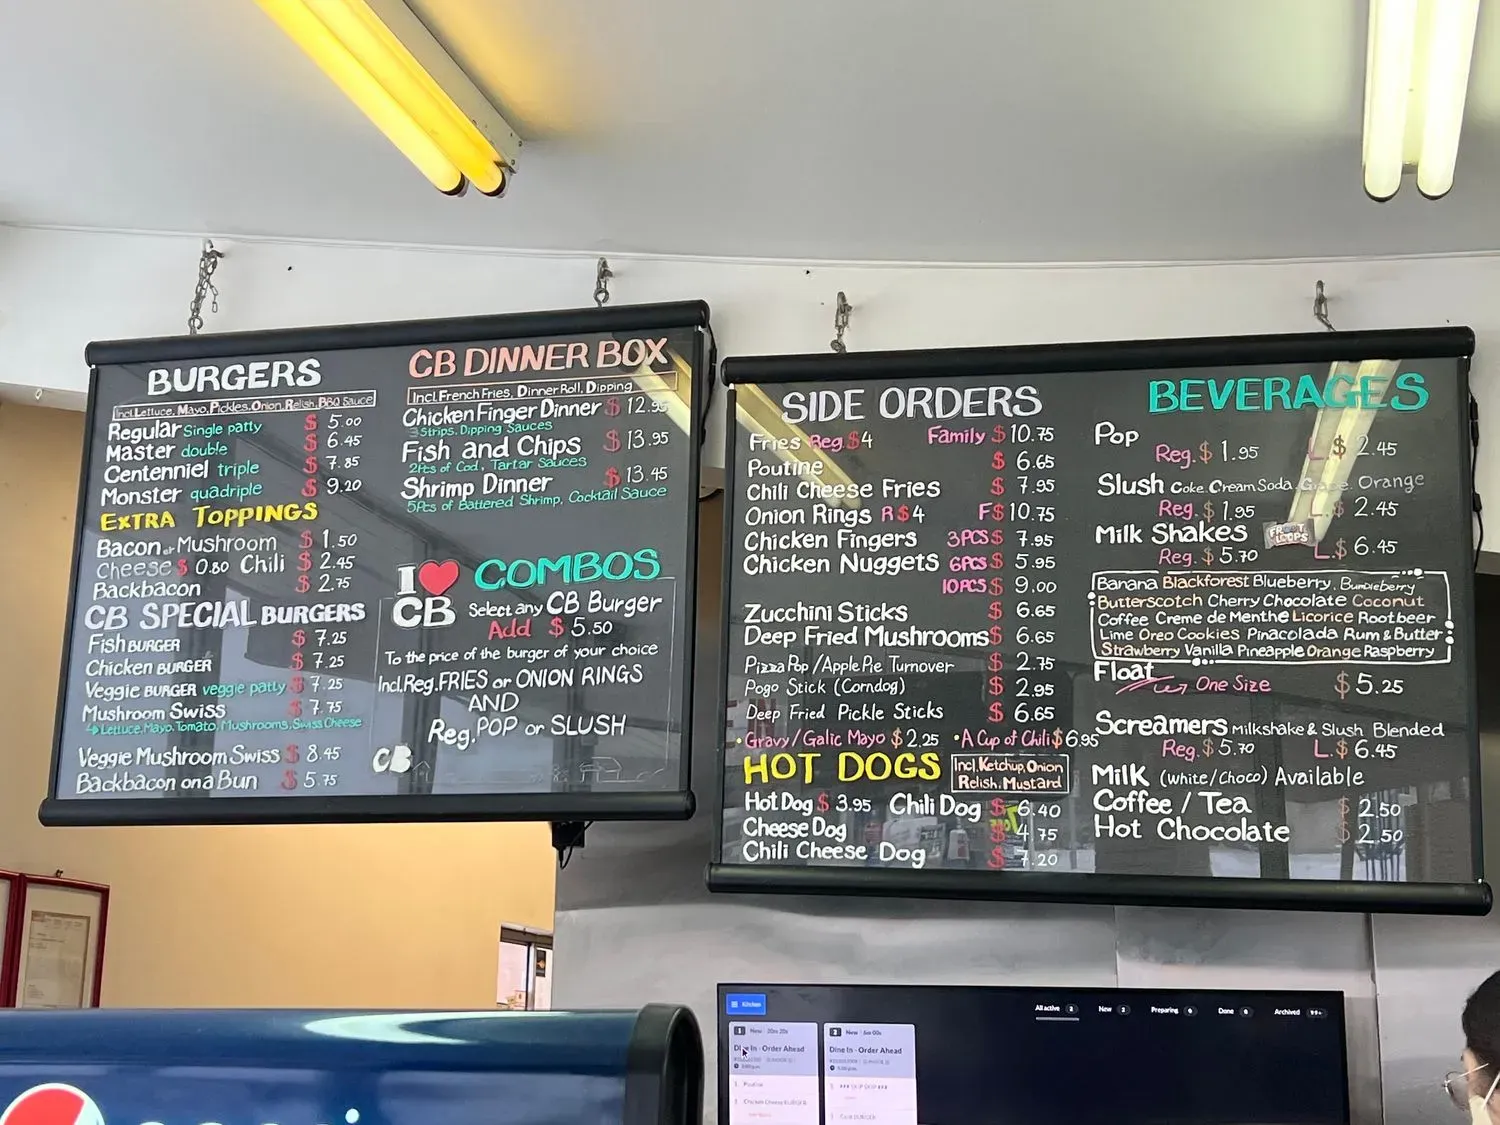 BURGERS
Incl. Lettuce, Mayo, Pickles, Onion, Relish, BBQ Sauce
Regular Single patty $ 5.00
Master double $ 6.45
Centenniel triple $ 7.85
Monster quadriple $ 9.20
EXTRA TOPPINGS
Bacon or Mushroom $ 1.50
Cheese $ 0.80 Chili $ 2.45
Backbacon $ 2.75
CB SPECIAL BURGERS
Fish BURGER $ 7.25
Chicken BURGER $ 7.25
Veggie BURGER veggie patty $ 7.25
Mushroom Swiss $ 7.75
Lettuce, Mayo, Tomato, Mushrooms, Swiss Cheese
Veggie Mushroom Swiss $ 8.45
Backbacon on a Bun $ 5.75
CB DINNER BOX
Incl. French Fries, Dinner Roll, Dipping
Chicken Finger Dinner $ 12.95
3 Strips, Dipping Sauces
Fish and Chips $ 13.95
2Pcs of Cod, Tartar Sauces
Shrimp Dinner $ 13.45
5Pcs of Battered Shrimp, Cocktail Sauce
I CB
COMBOS
Select any CB Burger
Add $ 5.50
To the price of the burger of your choice
Incl. Reg. FRIES or ONION RINGS
AND
Reg. POP or SLUSH
CB
SIDE ORDERS
Fries Reg $4 Family $ 10.75
Poutine $ 6.65
Chili Cheese Fries $ 7.95
Onion Rings R $4 F $ 10.75
Chicken Fingers 3PCS $ 7.95
Chicken Nuggets 6PCS $ 5.95
10PCS $ 9.00
Zucchini Sticks $ 6.65
Deep Fried Mushrooms $ 6.65
Pizza Pop / Apple Pie Turnover $ 2.75
Pogo Stick (Corndog) $ 2.95
Deep Fried Pickle Sticks $ 6.65
• Gravy / Galic Mayo $ 2.25 • A Cup of Chili $ 6.95
HOT DOGS
Incl. Ketchup, Onion
Relish, Mustard
Hot Dog $ 3.95 Chili Dog $ 6.40
Cheese Dog $ 4.75
Chili Cheese Dog $ 7.20
BEVERAGES
Pop
Reg. $ 1.95 L $ 2.45
Slush Coke, Cream Soda, Grape, Orange
Reg. $ 1.95 L. $ 2.45
Milk Shakes FROOT LOOPS
Reg. $ 5.70 L. $ 6.45
Banana Blackforest Blueberry, Bumbleberry
Butterscotch Cherry Chocolate Coconut
Coffee Creme de Menthe Licorice Rootbeer
Lime Oreo Cookies Pinacolada Rum & Butter
Strawberry Vanilla Pineapple Orange Raspberry
Float
One Size $ 5.25
Screamers Milkshake & Slush Blended
Reg. $ 5.70 L. $ 6.45
Milk (White/Choco) Available
Coffee / Tea $ 2.50
Hot Chocolate $ 2.50
Kitchen
All active 2 New 2 Preparing 0 Done 0 Archived 99+
1 New
Dine In - Order Ahead
Poutine
2 New
Dine In - Order Ahead